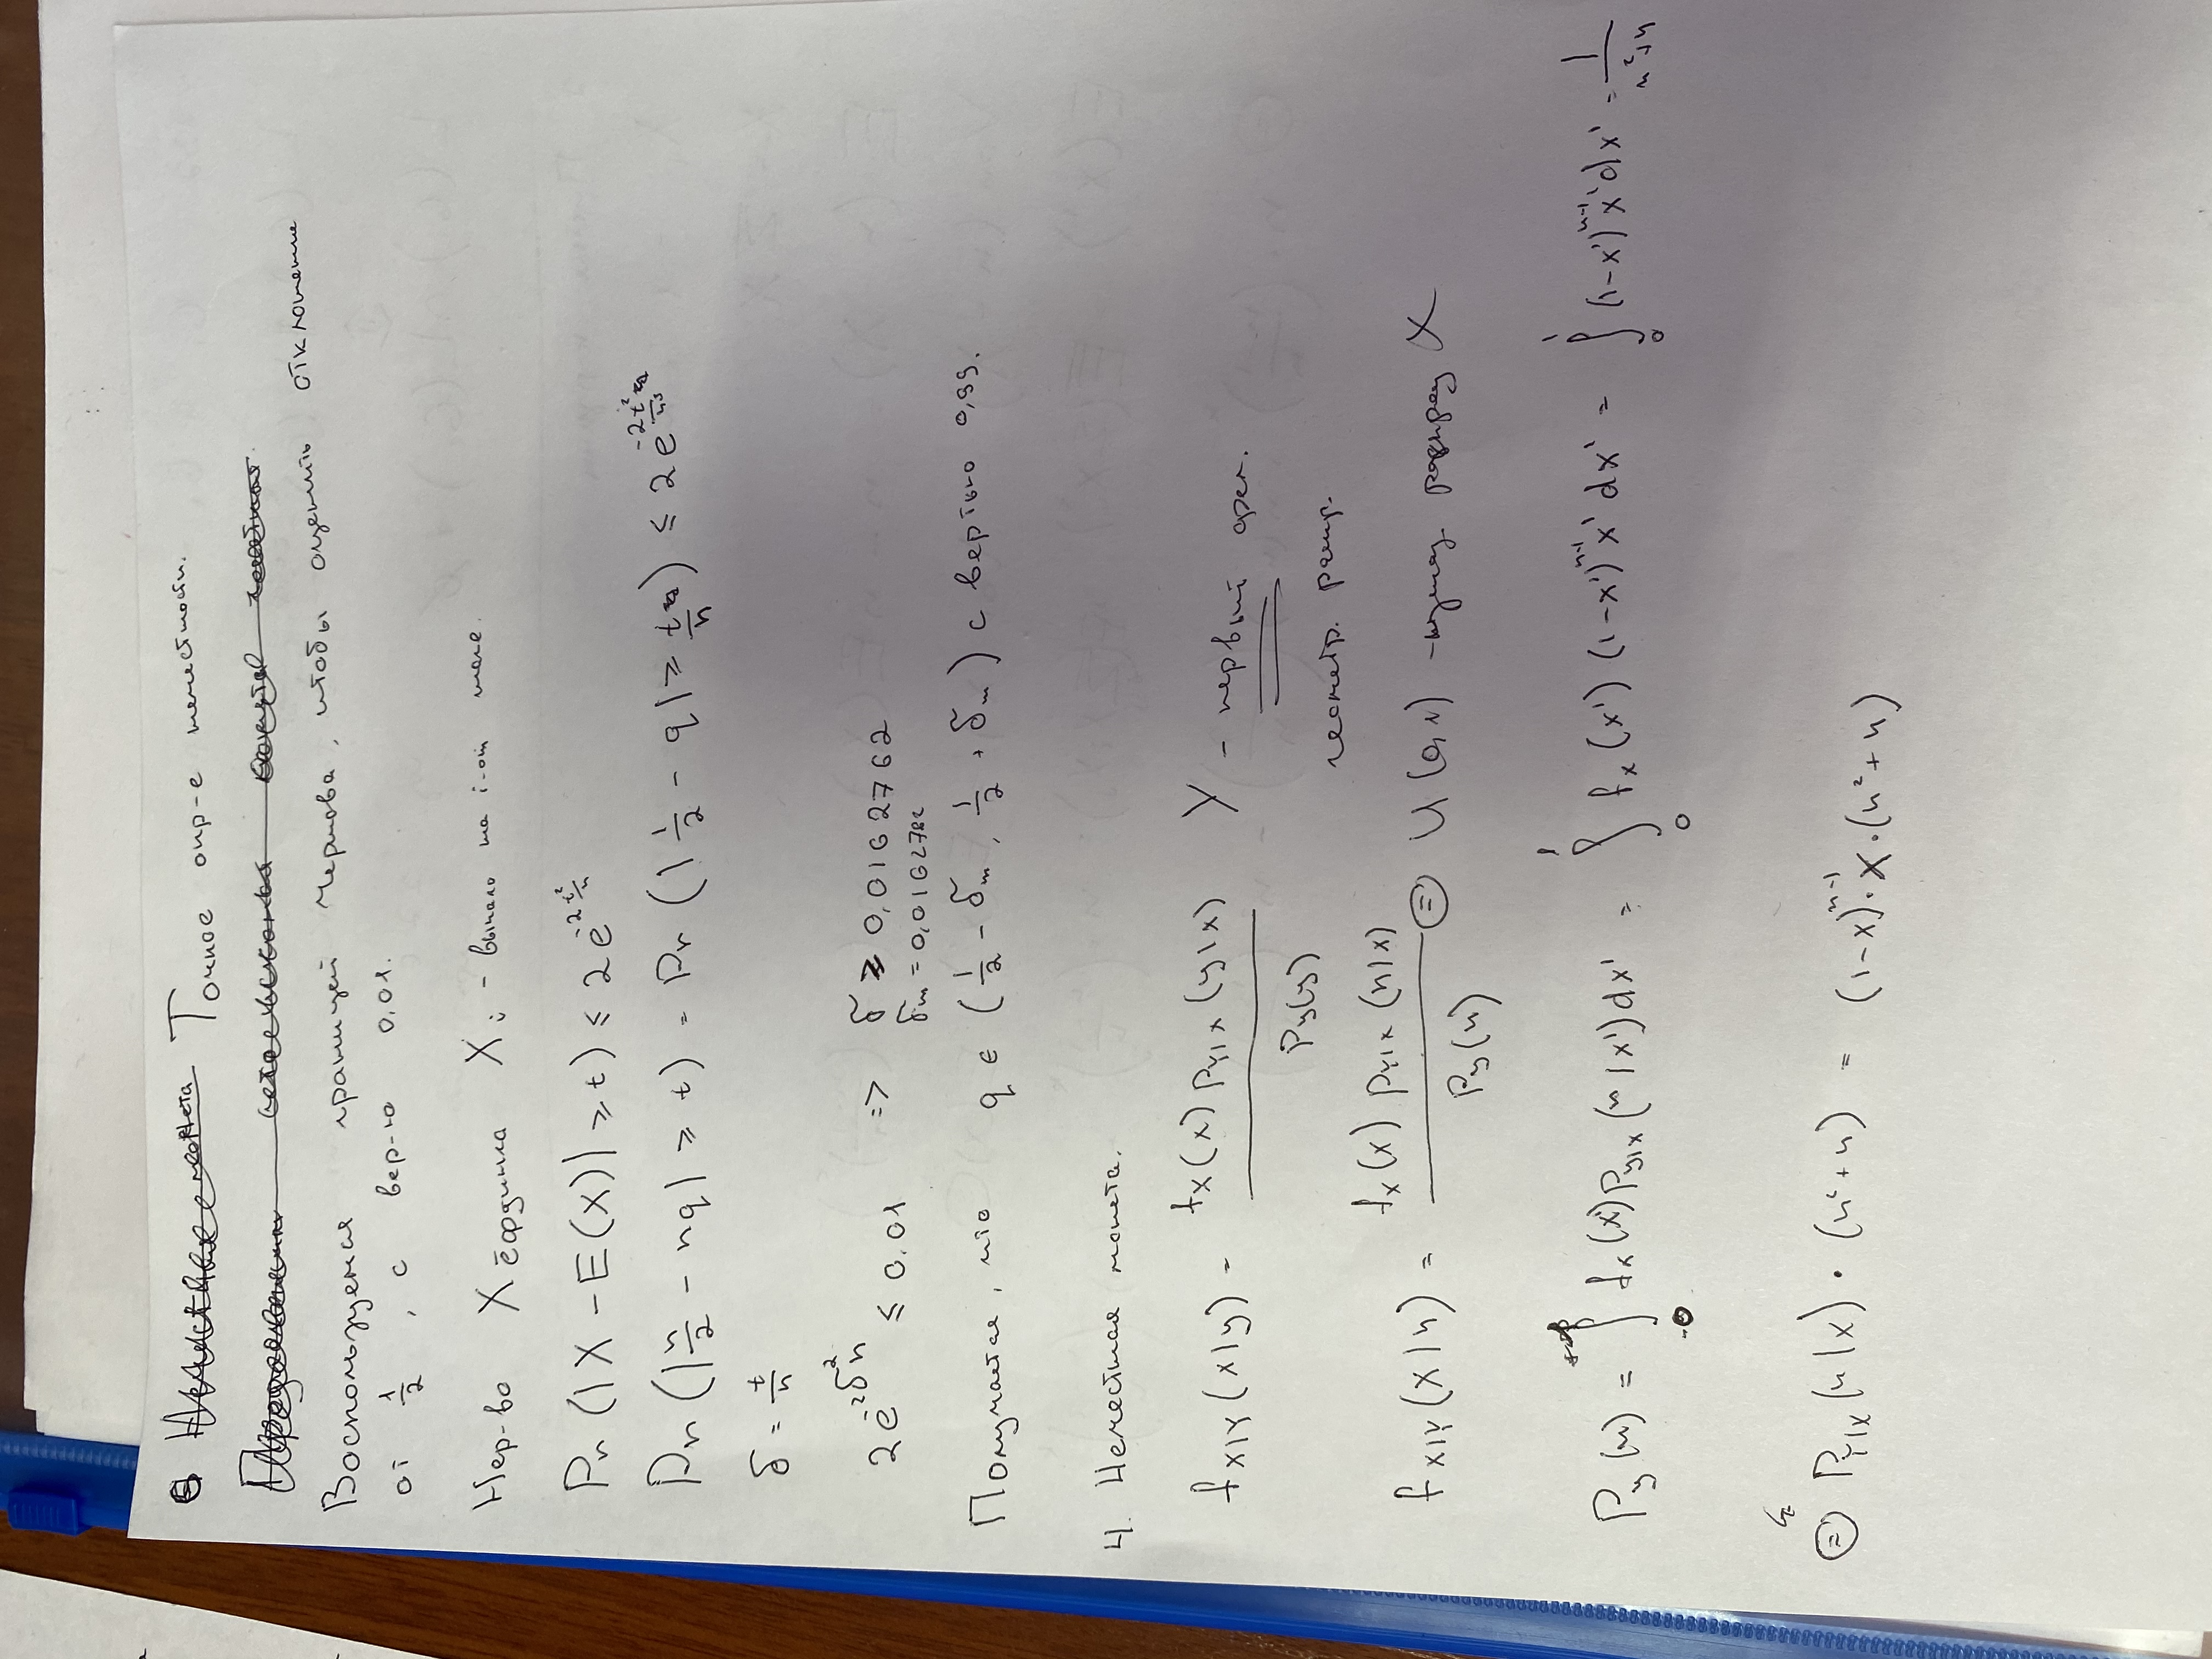 5 Точное опр-е нечестности.
Воспользуемся границей Чернова, чтобы оценить отклонение
от 1/2, с вер-ю 0,01.
Нер-во Хёфдинга X_i - выпало на i-ом шаге.
Pr (|X - E(X)| ≥ t) ≤ 2e^{-2t²/n}
Pr (|n/2 - nq| ≥ t) = Pr (|1/2 - q| ≥ t/n) ≤ 2e^{-2t²/n}
δ = t/n
2e^{-2δ²n} ≤ 0,01 => δ ≥ 0,0162762
δ_m = 0,0162762
Получается, что q ∈ (1/2 - δ_m, 1/2 + δ_m) с вер-тью 0,99.
4. Нечестная монета.
f_{X|Y}(x|y) = f_X(x) p_{Y|X}(y|x) / P_y(y) Y - первый орел.
геометр. распр.
f_{X|Y}(x|n) = f_X(x) p_{Y|X}(n|x) / P_y(n) ⊜ U(0,1) X
P_y(n) = ∫ f_x(x') P_{y|x}(n|x') dx' = ∫_0^1 f_x(x') (1-x')^{n-1} x' dx' = ∫_0^1 (1-x')^{n-1} x' dx' = 1/(n²+n)
⊜ P_{Y|X}(n|x) · (n²+n) = (1-x)^{n-1} · x · (n²+n)